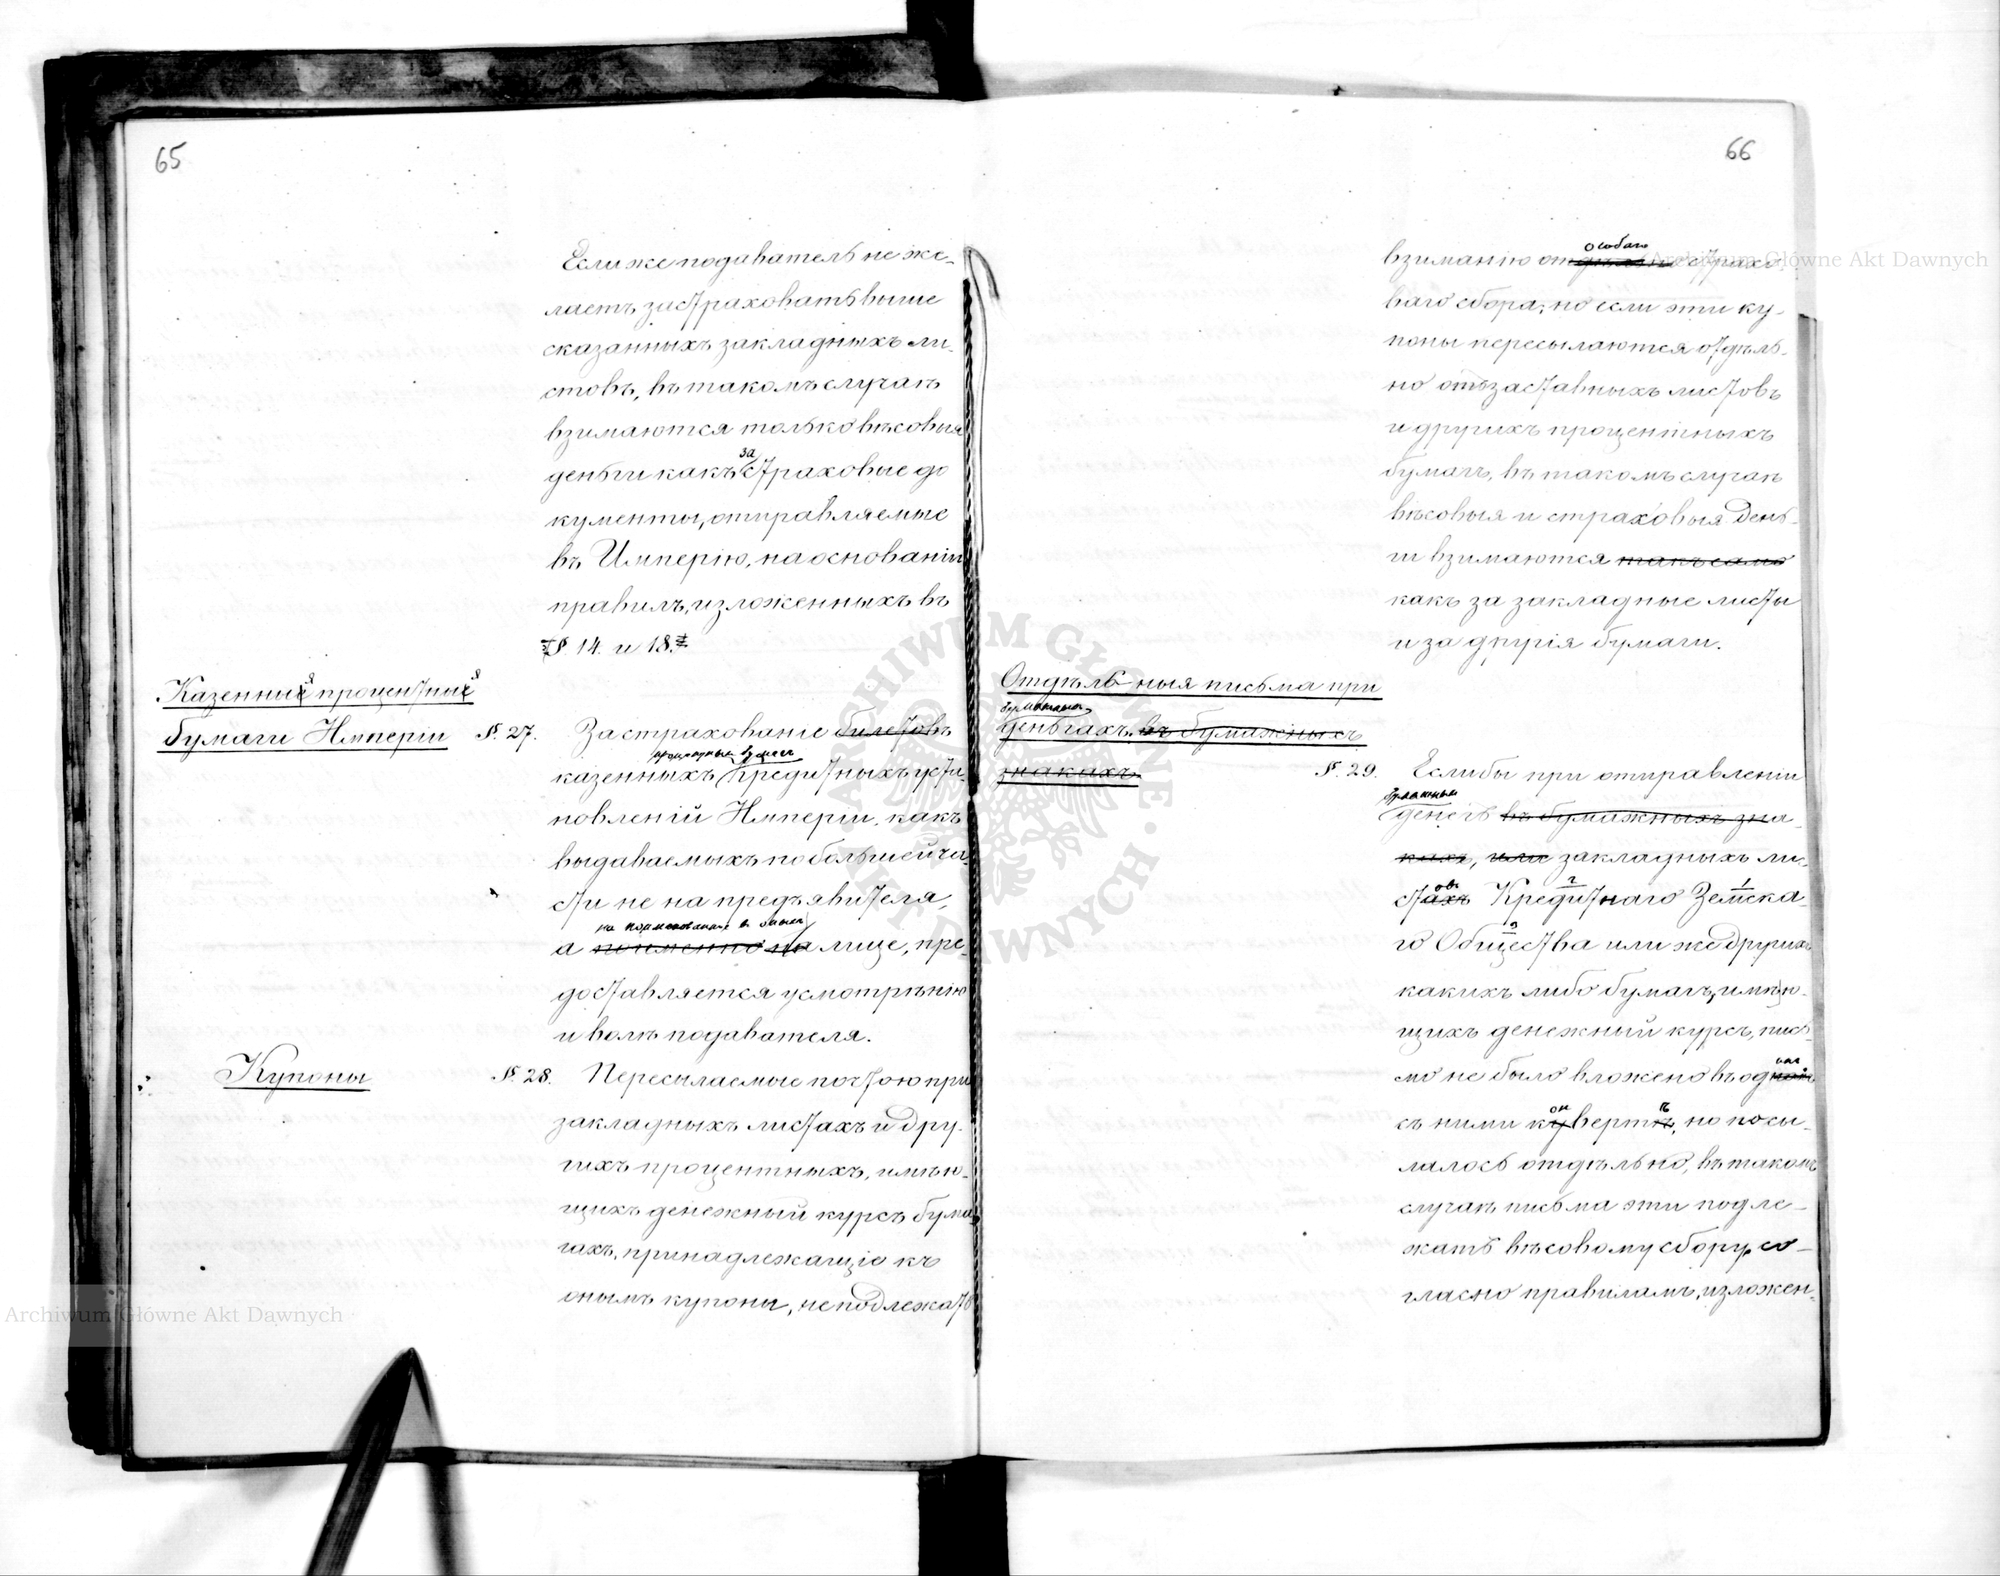 65
Если же подаватель не же-
лаетъ застраховать выше
сказанныхъ закладныхъ ли-
стовъ, въ такомъ случаѣ
взимаются только вѣсовыя
за
деньги какъ страховые до
кументы, отправляемые
въ Имперію, на основаніи
правилъ, изложенныхъ въ
§. 14. и 18.
Казенныя процентныя
бумаги Имперіи
§. 27. Застрахованіе билетовъ
казенныхъ Кредитныхъ уста-
новленій Имперіи, какъ
выдаваемыхъ по большей ча-
сти не на предъявителя,
а поименно на лице, пре-
доставляется усмотрѣнію
и волѣ подавателя.
Купоны
§. 28. Пересылаемые почтою при
закладныхъ листахъ и дру-
гихъ процентныхъ, имѣю-
щихъ денежный курсъ бума
гахъ, принадлежащіе къ
онымъ купоны, не подлежатъ
66
особаго
взиманію страхо
ваго сбора; но если эти ку-
поны пересылаются отдѣль-
но отъ заставныхъ листовъ
и другихъ процентныхъ
бумагъ, въ такомъ случаѣ
вѣсовыя и страховыя день-
ги взимаются такъ само
какъ за закладные листы
и за другія бумаги.
Отдѣльныя письма при
деньгахъ въ бумажныхъ
знакахъ.
§. 29. Еслибы при отправленіи
бумажныхъ
денегъ въ бумажныхъ зна-
кахъ, или закладныхъ ли-
овъ 2 1
стахъ Кредитнаго Земска-
3
го Общества или же другихъ
какихъ либо бумагъ, имѣю-
щихъ денежный курсъ, пись-
мо не было вложено въ одной
он ѣ
съ ними кувертъ, но посы-
лалось отдѣльно, въ такомъ
случаѣ письма эти подле-
жатъ вѣсовому сбору, со-
гласно правиламъ, изложен-
Archiwum Główne Akt Dawnych
Archiwum Główne Akt Dawnych
ARCHIWUM GŁÓWNE AKT DAWNYCH